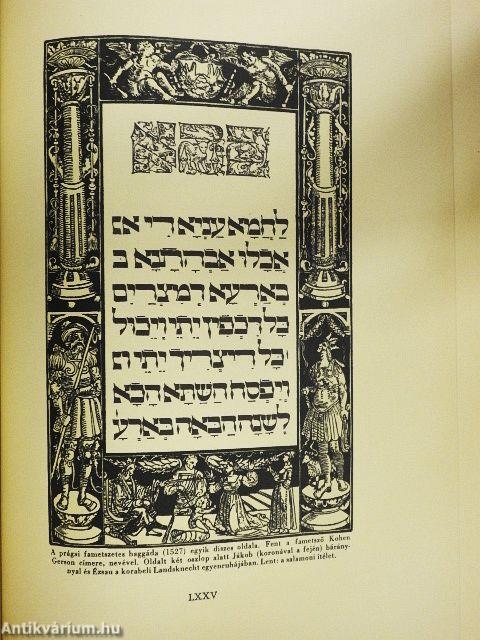 כהא
לחמא עניא די אנ
אכלו אבהתנא ב
בארעא דמצרים
כל דכפין יתי ויכול
כל דיצריך יתי ו
ויפסח השתא הכא
לשנה הבאה בארע
A prágai fametszetes haggáda (1527) egyik díszes oldala. Fent a fametsző Kohen
Gerson címere, nevével. Oldalt két oszlop alatt Jákob (koronával a fején) bárány-
nyal és Ézsau a korabeli Landsknecht egyenruhájában. Lent: a salamoni ítélet.
LXXV
Antikvárium.hu